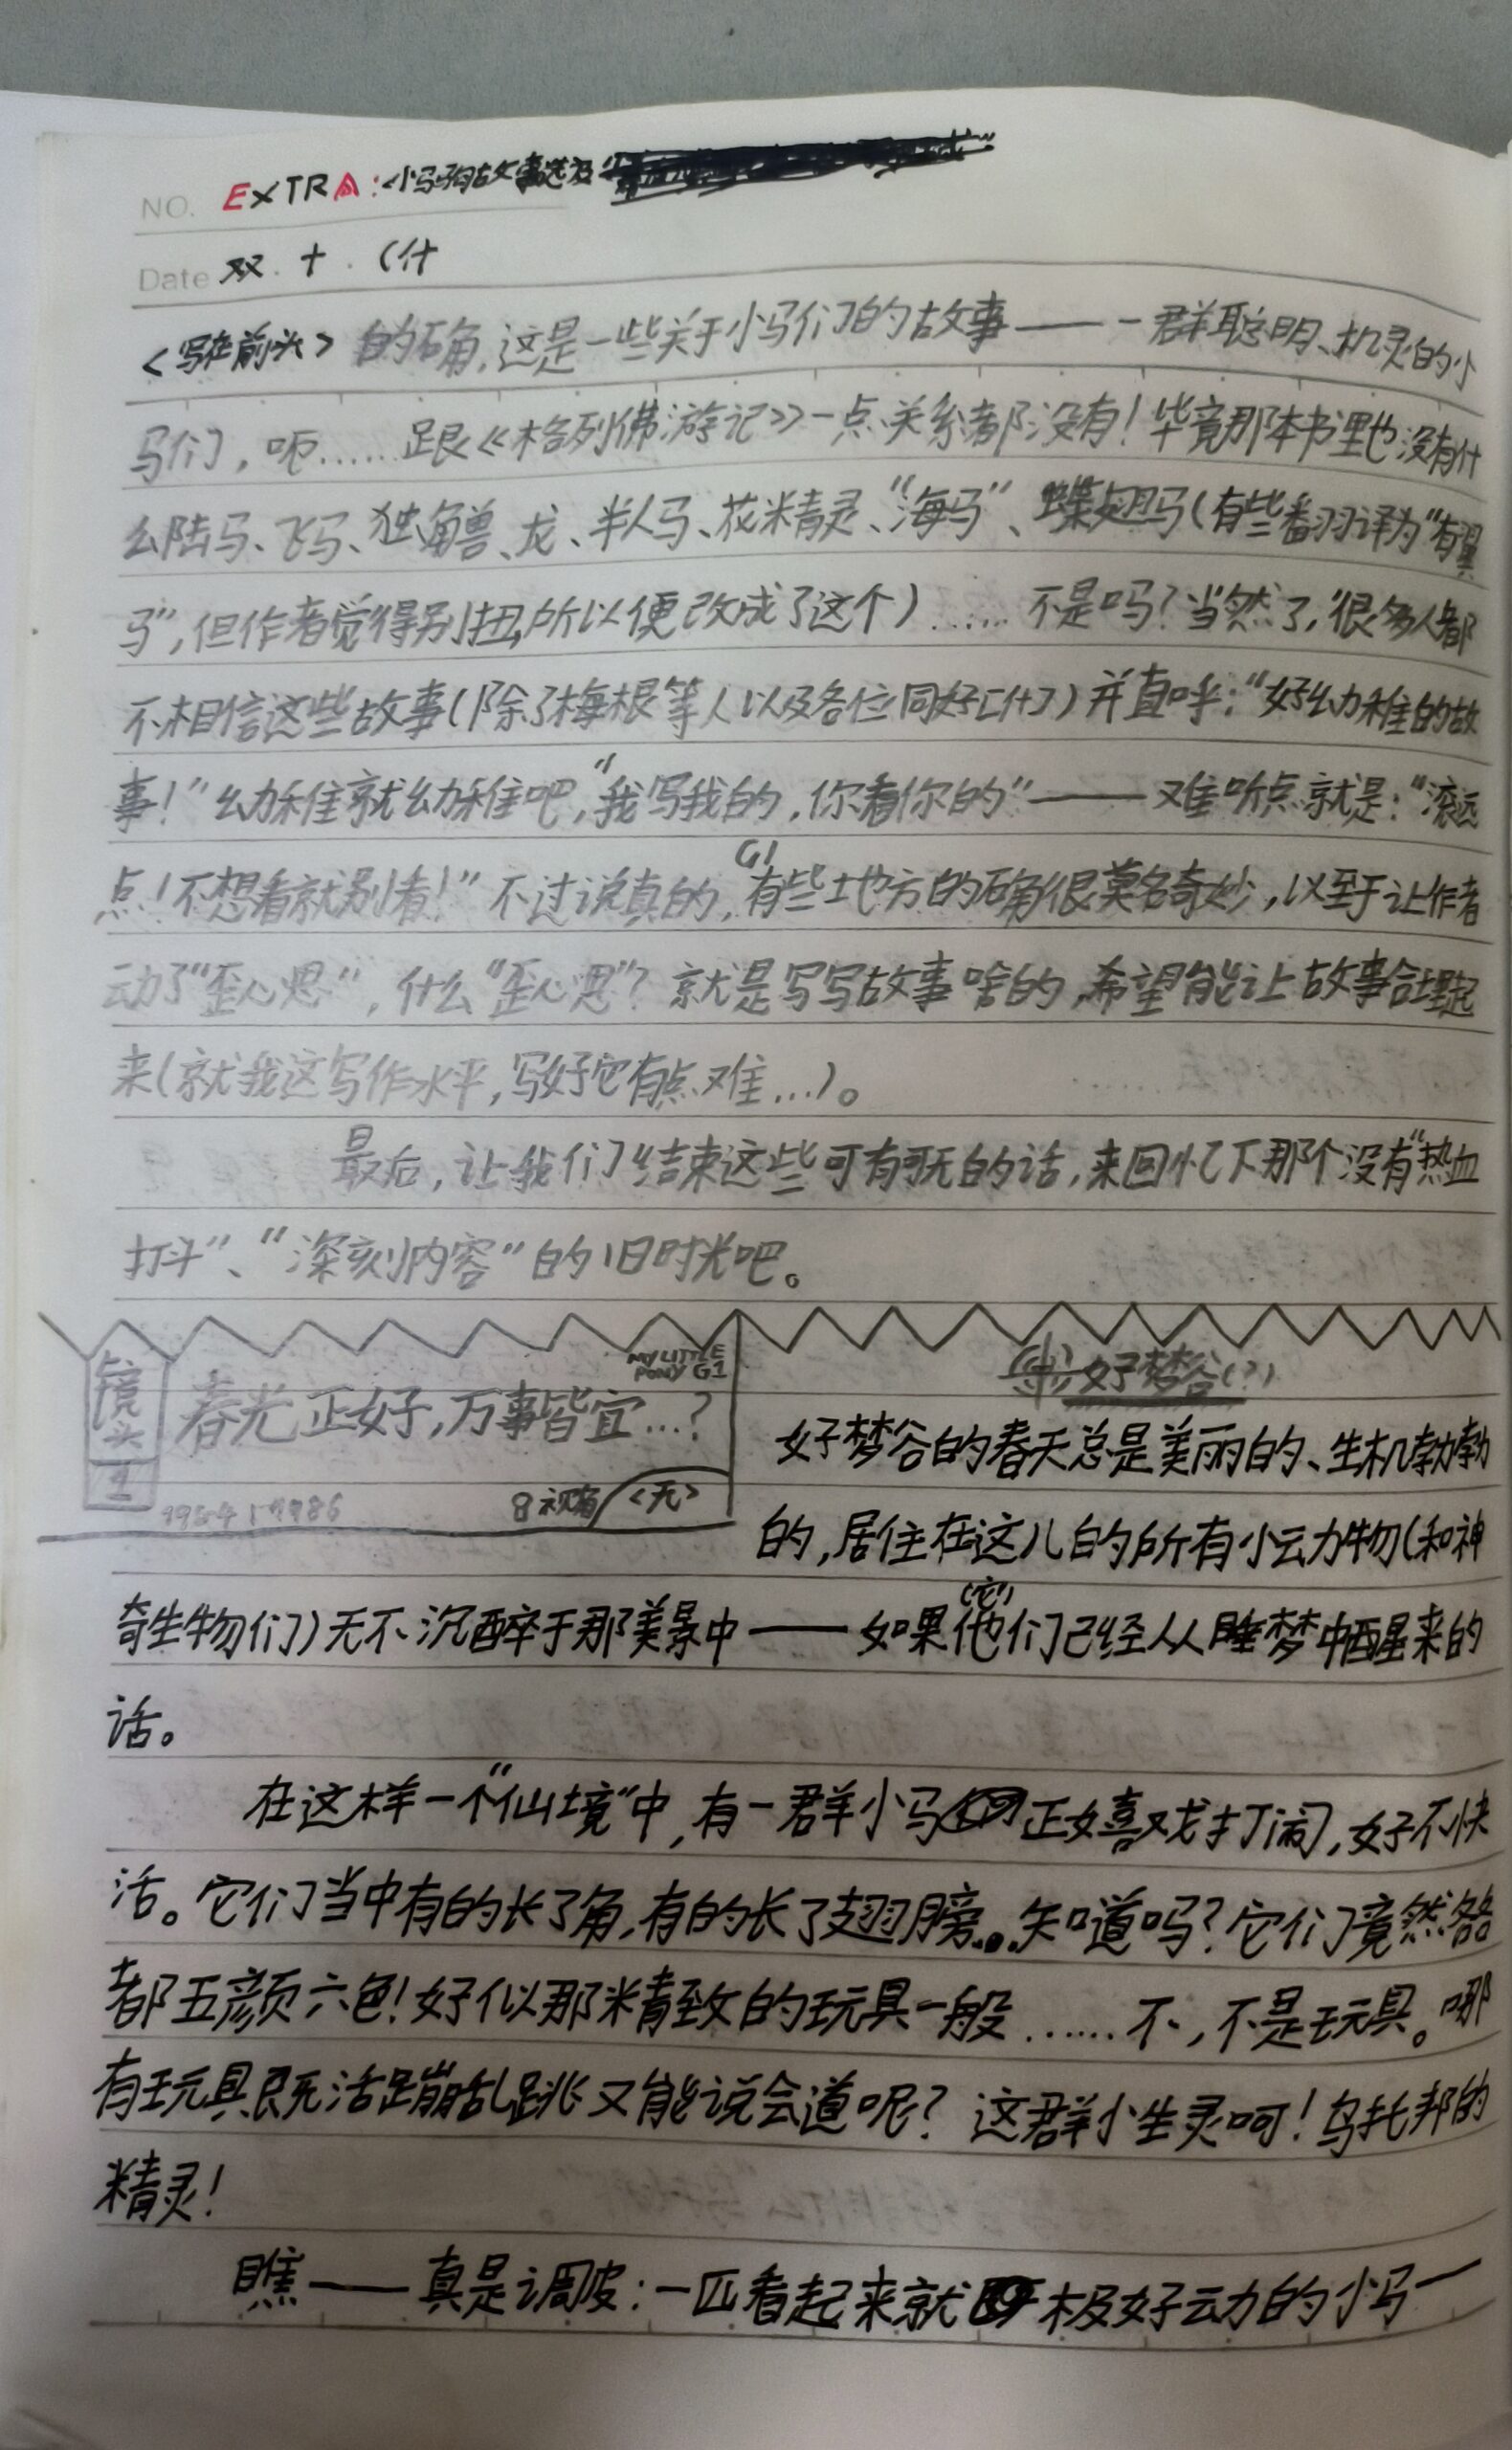 NO. EXTRA:小马驹故事选及
Date 双.十.(什
<写在前头> 的确,这是一些关于小马们的故事——一群聪明、机灵的小
马们,呃……跟《格列佛游记》一点关系都没有!毕竟那本书里也没有什
么陆马、飞马、独角兽、龙、半人马、花精灵、“海马”、蝶翅马(有些翻译为“有翼
马”,但作者觉得别扭,所以便改成了这个)……不是吗?当然了,很多人都
不相信这些故事(除了梅根等人以及各位同好[什])并直呼:“好幼稚的故
事!”幼稚就幼稚吧,“我写我的,你看你的”——难听点就是:“滚远
点!不想看就别看!”不过说真的,G1有些地方的确很莫名奇妙,以至于让作者
动了“歪心思”,什么“歪心思”?就是写写故事啥的,希望能让故事合理起
来(就我这写作水平,写好它有点难…)。
最后,让我们结束这些可有可无的话,来回忆下那个没有“热血
打斗”、“深刻内容”的旧时光吧。
镜头1
春光正好,万事皆宜…?
MY LITTLE PONY G1
<无>
好梦谷(?)
好梦谷的春天总是美丽的、生机勃勃
的,居住在这儿的所有小动物(和神
奇生物们)无不沉醉于那美景中——如果他(它)们已经从睡梦中醒来的
话。
在这样一个“仙境”中,有一群小马正嬉戏打闹,好不快
活。它们当中有的长了角,有的长了翅膀…知道吗?它们竟然各个
都五颜六色!好似那精致的玩具一般……不,不是玩具。哪
有玩具既活蹦乱跳又能说会道呢?这群小生灵呵!乌托邦的
精灵!
瞧——真是调皮:一匹看起来就极好动的小马一